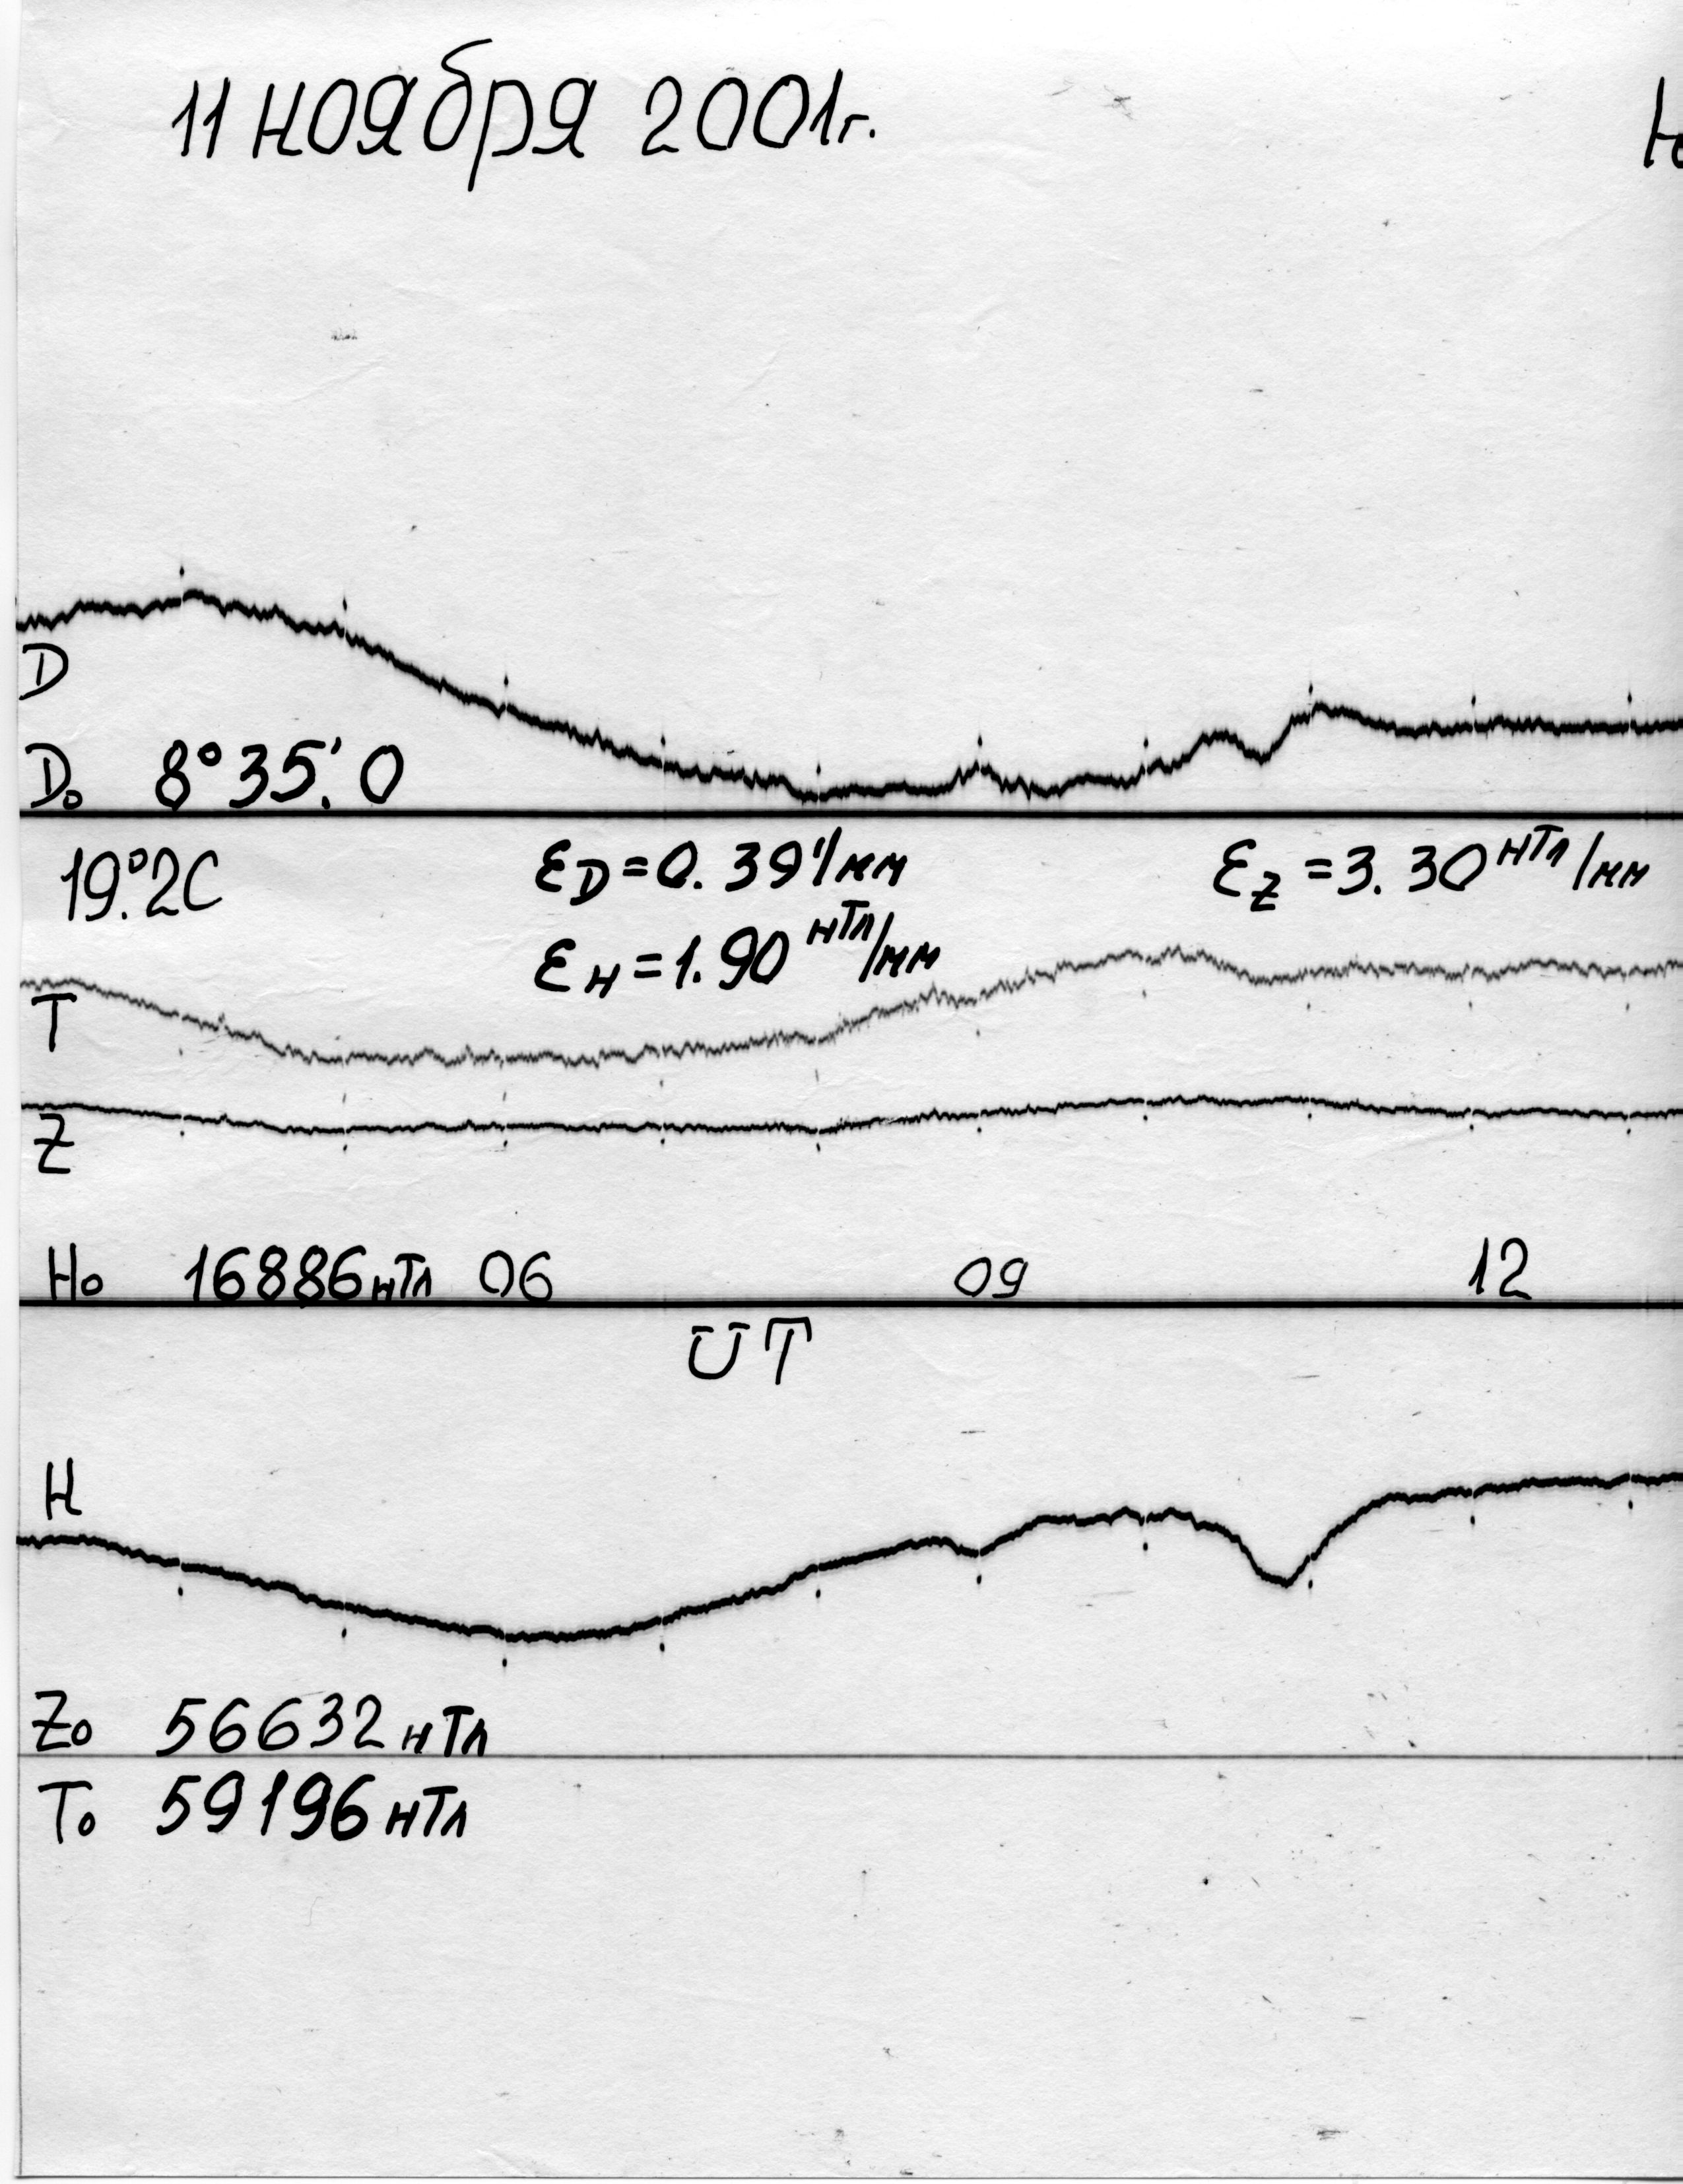 11 ноября 2001г.
D
D₀ 8°35.'0
19.°2C
ε_D=0.39'/мм
ε_Z=3.30 нТл/мм
ε_H=1.90 нТл/мм
T
Z
H₀ 16886нТл 06 09 12
UT
H
Z₀ 56632нТл
T₀ 59196нТл